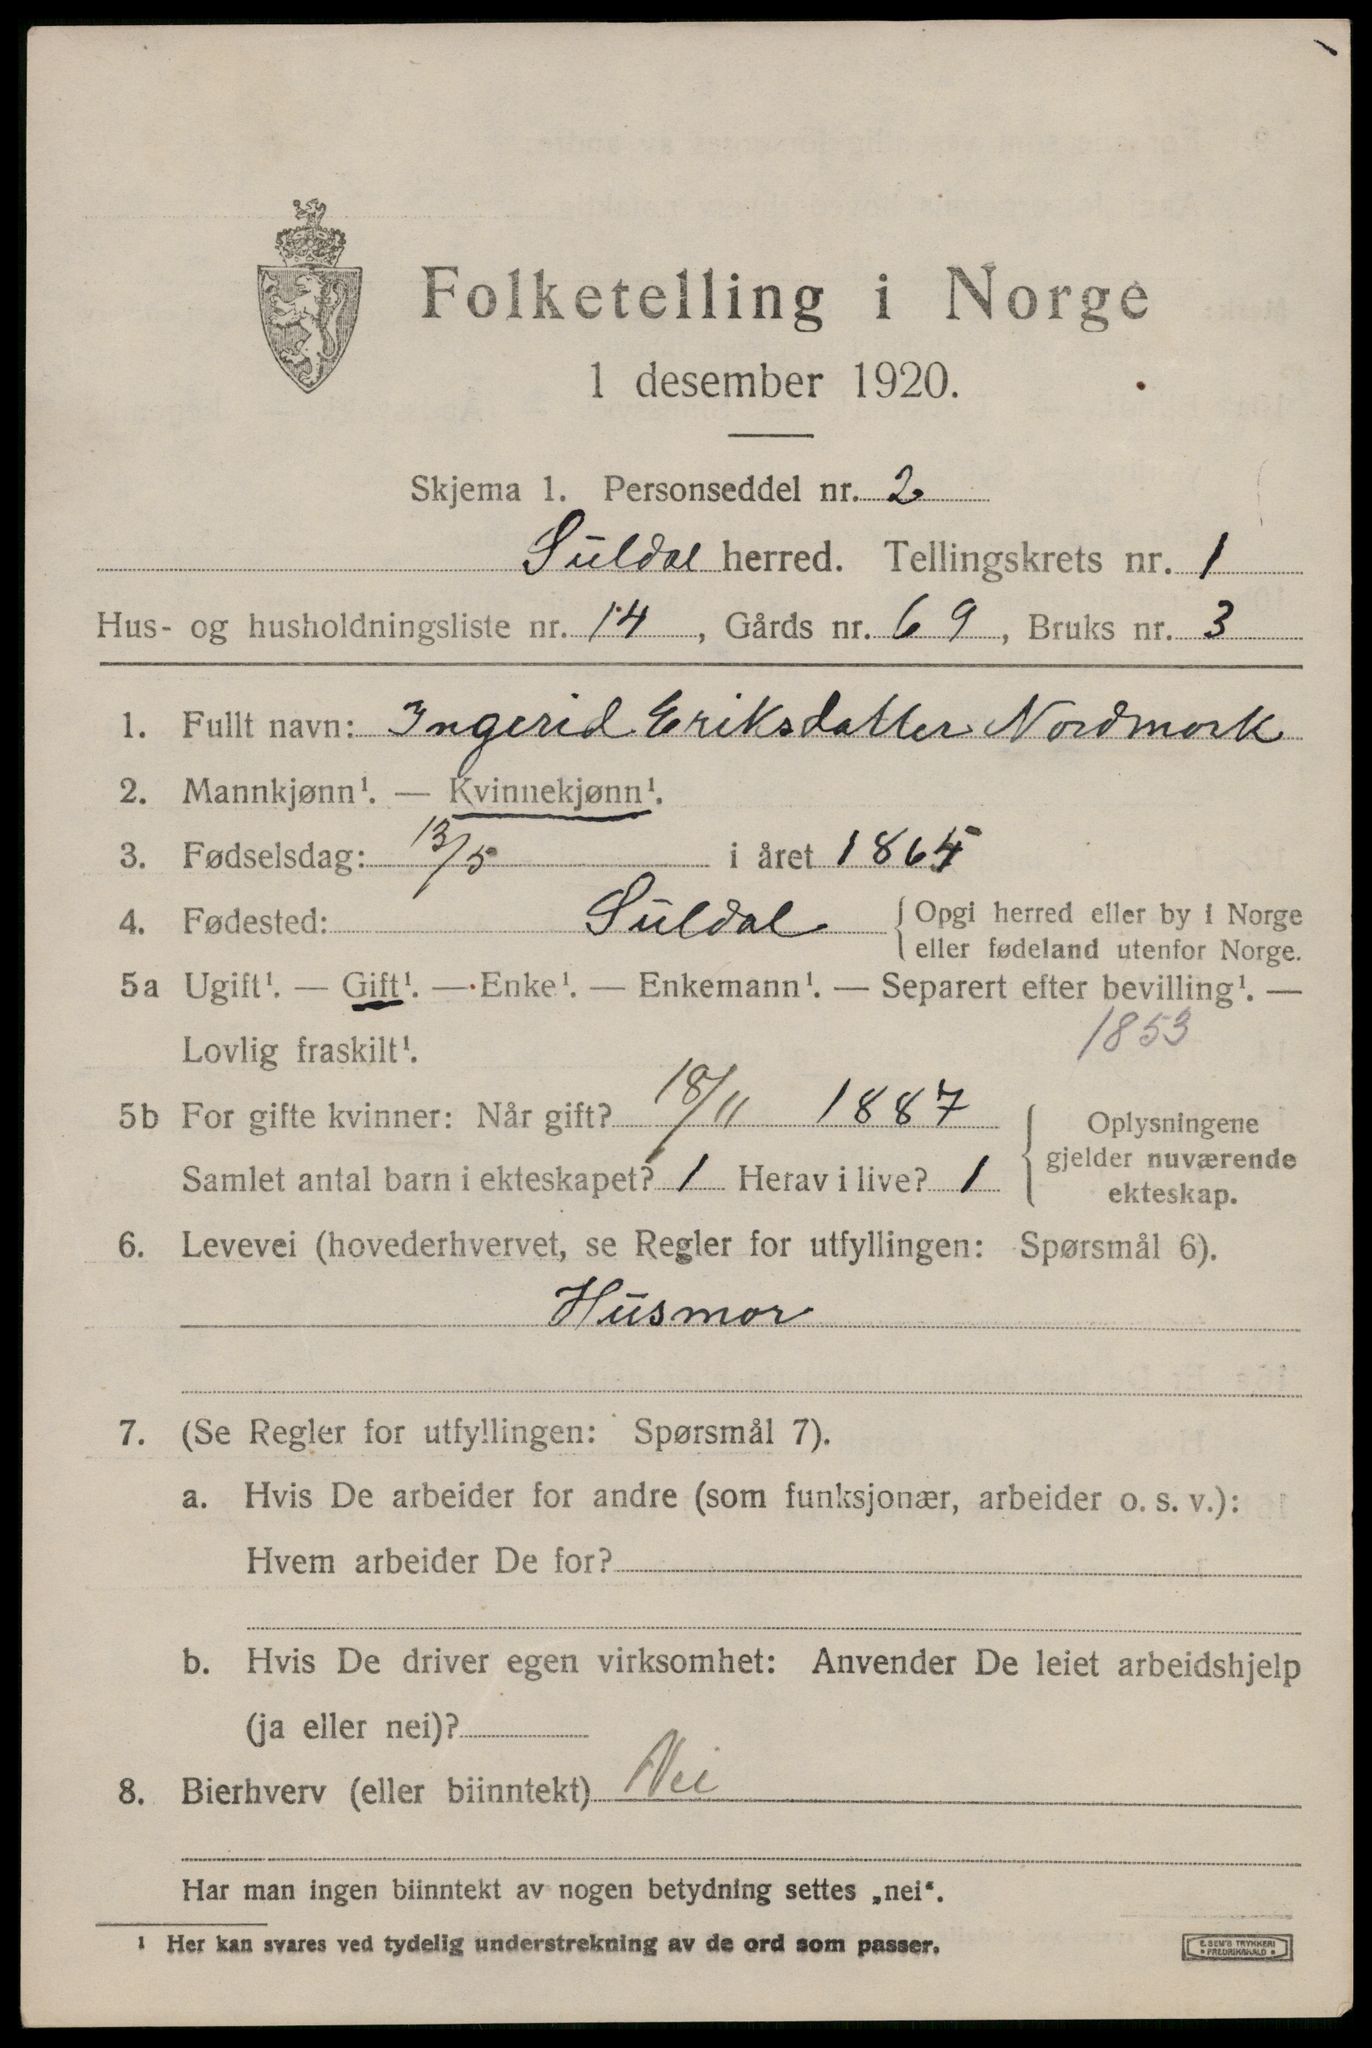 Folketelling i Norge
1 desember 1920.
Skjema 1. Personseddel nr. 2
Suldal herred. Tellingskrets nr. 1
Hus- og husholdningsliste nr. 14, Gårds nr. 69, Bruks nr. 3
1. Fullt navn: Ingerid Eriksdatter Nordmork
2. Mannkjønn¹. — Kvinnekjønn¹.
3. Fødselsdag: 13/5 i året 1865
4. Fødested: Suldal { Opgi herred eller by i Norge
eller fødeland utenfor Norge.
5a Ugift¹. — Gift¹. — Enke¹. — Enkemann¹. — Separert efter bevilling¹. —
Lovlig fraskilt¹. 1853
5b For gifte kvinner: Når gift? 18/11 1887 { Oplysningene
gjelder nuværende
Samlet antal barn i ekteskapet? 1 Herav i live? 1 ekteskap.
6. Levevei (hovederhvervet, se Regler for utfyllingen: Spørsmål 6).
Husmor
7. (Se Regler for utfyllingen: Spørsmål 7).
a. Hvis De arbeider for andre (som funksjonær, arbeider o. s. v.):
Hvem arbeider De for?
b. Hvis De driver egen virksomhet: Anvender De leiet arbeidshjelp
(ja eller nei)?
8. Bierhverv (eller biinntekt) Nei
Har man ingen biinntekt av nogen betydning settes „nei“.
¹ Her kan svares ved tydelig understrekning av de ord som passer.
E. SEM'S TRYKKERI
• FREDRIKSHALD •